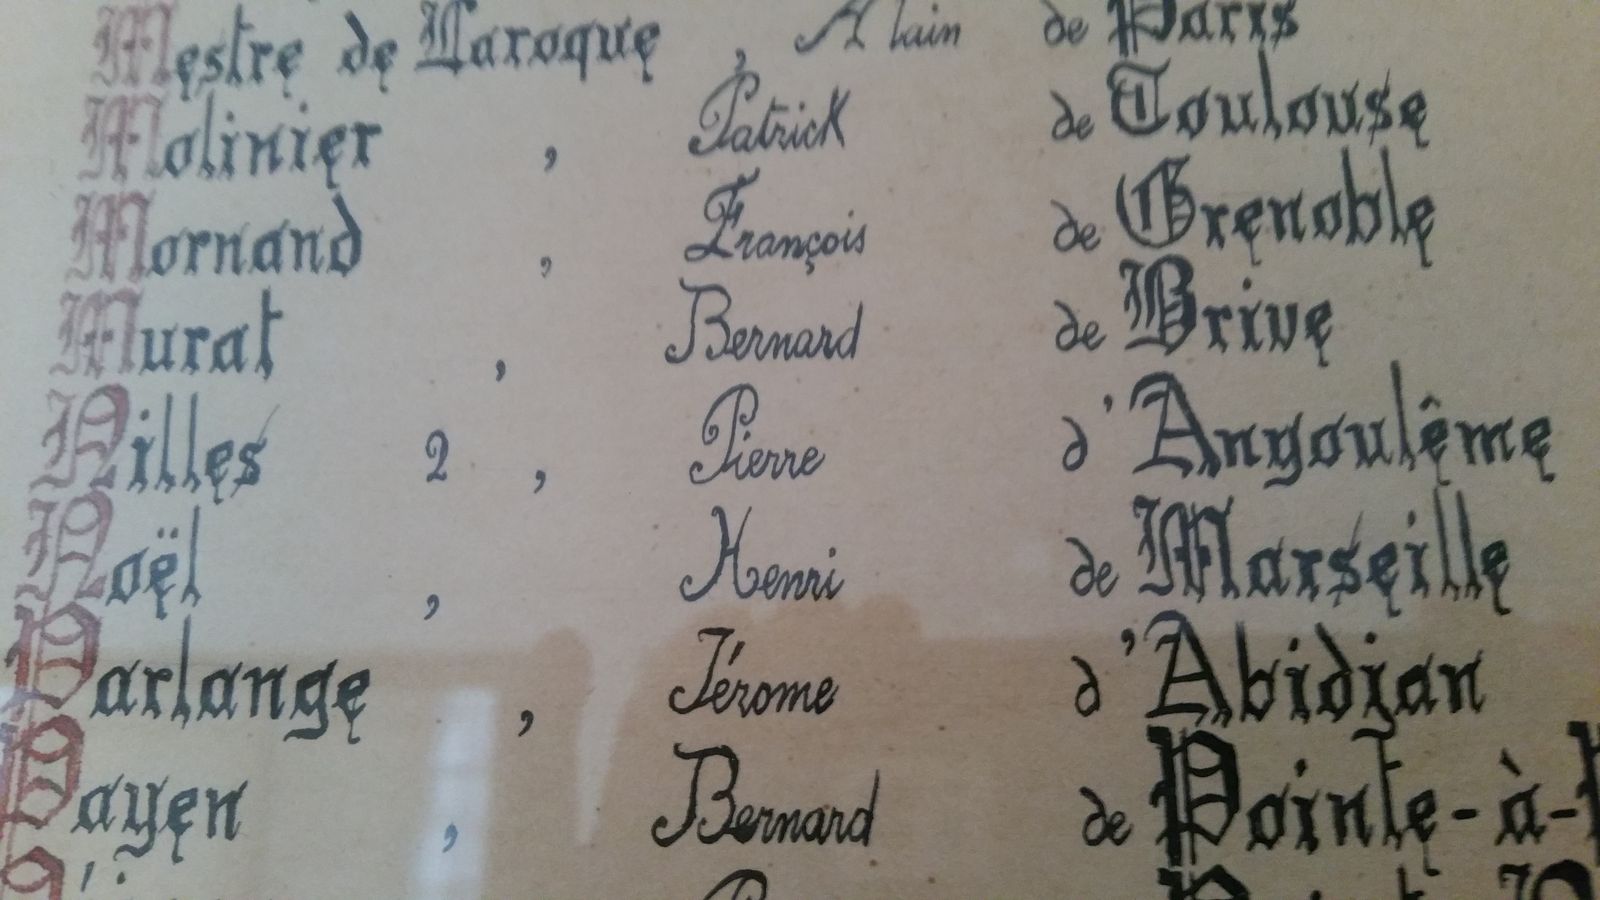 Mestre de Laroque , Alain de Paris
Molinier , Patrick de Toulouse
Mornand , François de Grenoble
Murat , Bernard de Brive
Nilles 2 , Pierre d'Angoulême
Noël , Henri de Marseille
Parlange , Jérome d'Abidjan
Payen , Bernard de Pointe-à-